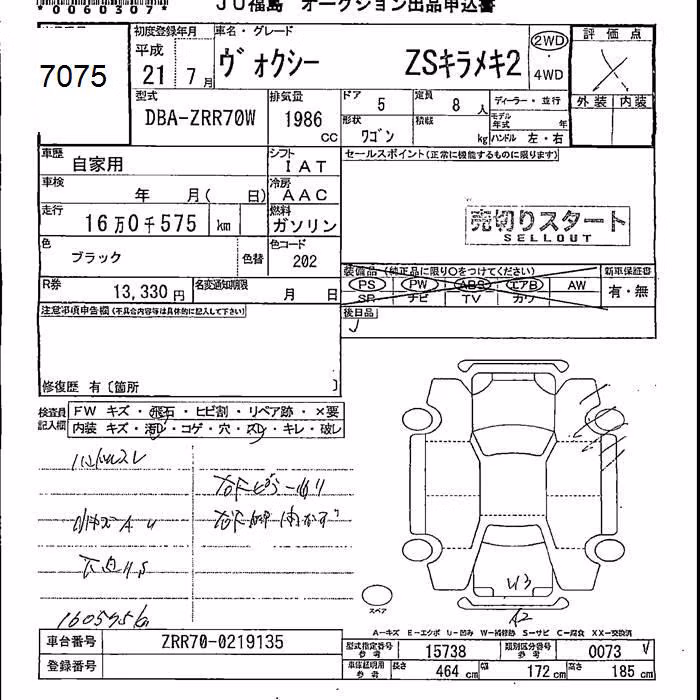 *0060307*
JU福島 オークション出品申込書
7075
初度登録年月
平成
21 7月
車名・グレード
ヴォクシー ZSキラメキ2
2WD
・
4WD
評価点
外装 内装
型式
DBA-ZRR70W
排気量
1986
CC
ドア 5
定員 8 人
形状
ワゴン
積載 kg
ディーラー・並行
モデル
年式 年
ハンドル 左・右
車歴
自家用
シフト
IAT
セールスポイント(正常に機能するものに限ります)
車検 年 月( 日)
冷房
AAC
走行
16万0千575 km
燃料
ガソリン
売切りスタート
SELLOUT
色
ブラック
色替
色コード
202
装備品(純正品に限り○をつけてください)
PS PW ABS エアB AW
SR ナビ TV カワ
新車保証書
有・無
R券
13,330円
名変通知期限
月 日
後日品
注意事項申告欄(不具合内容等は具体的に記入して下さい)
修復歴 有〔箇所 〕
検査員
記入欄
FW キズ・飛石・ヒビ割・リペア跡・×要
内装 キズ・汚レ・コゲ・穴・スレ・キレ・破レ
ハンドルスレ
160575km
U3
A2
スペア
A-キズ E-エクボ U-凹み W-補修跡 S-サビ C-腐食 XX-交換済
車台番号
ZRR70-0219135
登録番号
型式指定番号
参考
15738
類別区分番号
参考
0073
車庫証明用
参考
長さ
464 cm
幅
172 cm
高さ
185 cm